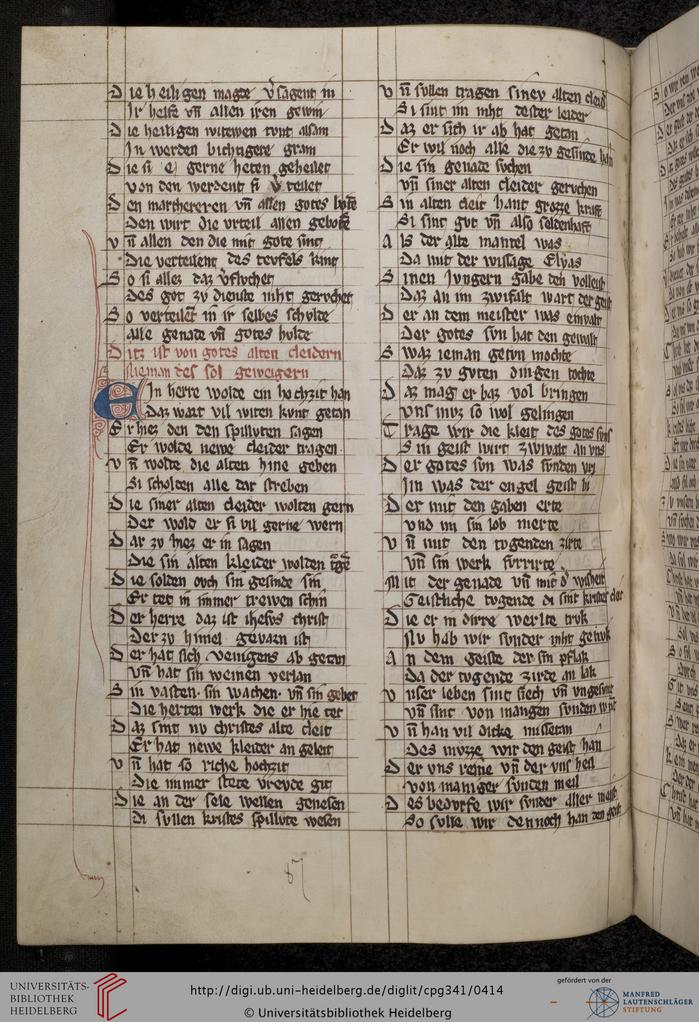 Die heiligen magde v̓sagent in
Ir helfe vn̄ allen iren gewin
Die heiligen witewen tvnt alsam
In werden bichtigere gram
Die si e gerne heten geheilet
von den werdent si v̓teilet
Den marthereren vn̄ allen gotes bote
Den wirt die vrteil allen gebote
vn̄ allen den die mit gote sint
Die verteilent des tevfels kint
So si allez daz v̓flvchet
Des got zv dienste niht gervchet
So verteilet in ir selbes schvlde
alle genade vn̄ gotes hvlde
Ditz ist von gotes alten cleidern
Nieman des sol geweigern
Ein herre wolde ein hochzit han
Daz wart vil witen kvnt getan
Er hiez den den spillvten sagen
Er wolde newe cleider tragen
vn̄ wolte die alten hine geben
Si scholden alle dar streben
Die siner alten cleider wolten gern
Der wold er si vil gerne wern
Dar zv hiez er in sagen
Die sin alten kleider wolden
Die solden ovch sin gesinde sin
Er tet in immer trewen schin
Der herre daz ist ihesus christ
Der zv himel gevarn ist
Der hat sich ab getan
vn̄ hat sin weinen verlan
Sin vasten sin wachen vn̄ sin gebet
Die herten werk die er hie tet
Daz sint nv christes alte cleit
Er hat newe kleider an geleit
vn̄ hat so riche hochzit
Die immer stete vrevde git
Die an der sele wellen genesen
Di svllen kristes spillvte wesen
87
vn̄ svllen tragen siner alten cleid
Si sint im niht dester leider
Daz er sich ir ab hat getan
Er wil noch alle die zv gesinde han
Die sin genade svchen
vn̄ siner alten cleider gervchen
Sin alten cleit hant grozze kraft
Si sint gvt vn̄ also seldenhaft
Als der alte mantel was
Da mit der wissage Elyas
Sinen Jvngern gabe den volleist
Daz an im zwifalt wart der geist
Der an dem meister was einvalt
Der gotes svn hat den gewalt
Swaz ieman getvn mochte
Daz zv gvten dingen tochte
Daz mag er baz vol bringen
vns mvz so wol gelingen
Trage wir die kleit des gotes svns
Sin geist wirt zwivalt an vns
Der gotes svn was svnden vri
Im was der engel geist bi
Der mit den gaben erte
vnd im sin lob merte
vn̄ mit den tvgenden zirte
vn̄ sin werk fvrrirte
Mit der genade vn̄ mit d̓ wisheit
Geistliche tvgende di sint kristes cleit
Die er in dirre werlte trvk
Nv hab wir svnder niht genvk
An dem geiste der sin pflak
Da der tvgende zirde an lak
vnser leben sint siech vn̄ vngesvnt
vn̄ sint von mangen svnden wvnt
vn̄ han vil dicke missetan
Des mvzze wir den geist han
Der vns reine vn̄ der vns heil
von maniger svnden meil
Des bedvrfe wir svnder aller meist
So svlle wir dennoch han den geist
UNIVERSITÄTS-
BIBLIOTHEK
HEIDELBERG
http://digi.ub.uni-heidelberg.de/diglit/cpg341/0414
© Universitätsbibliothek Heidelberg
gefördert von der
MANFRED
LAUTENSCHLÄGER
STIFTUNG